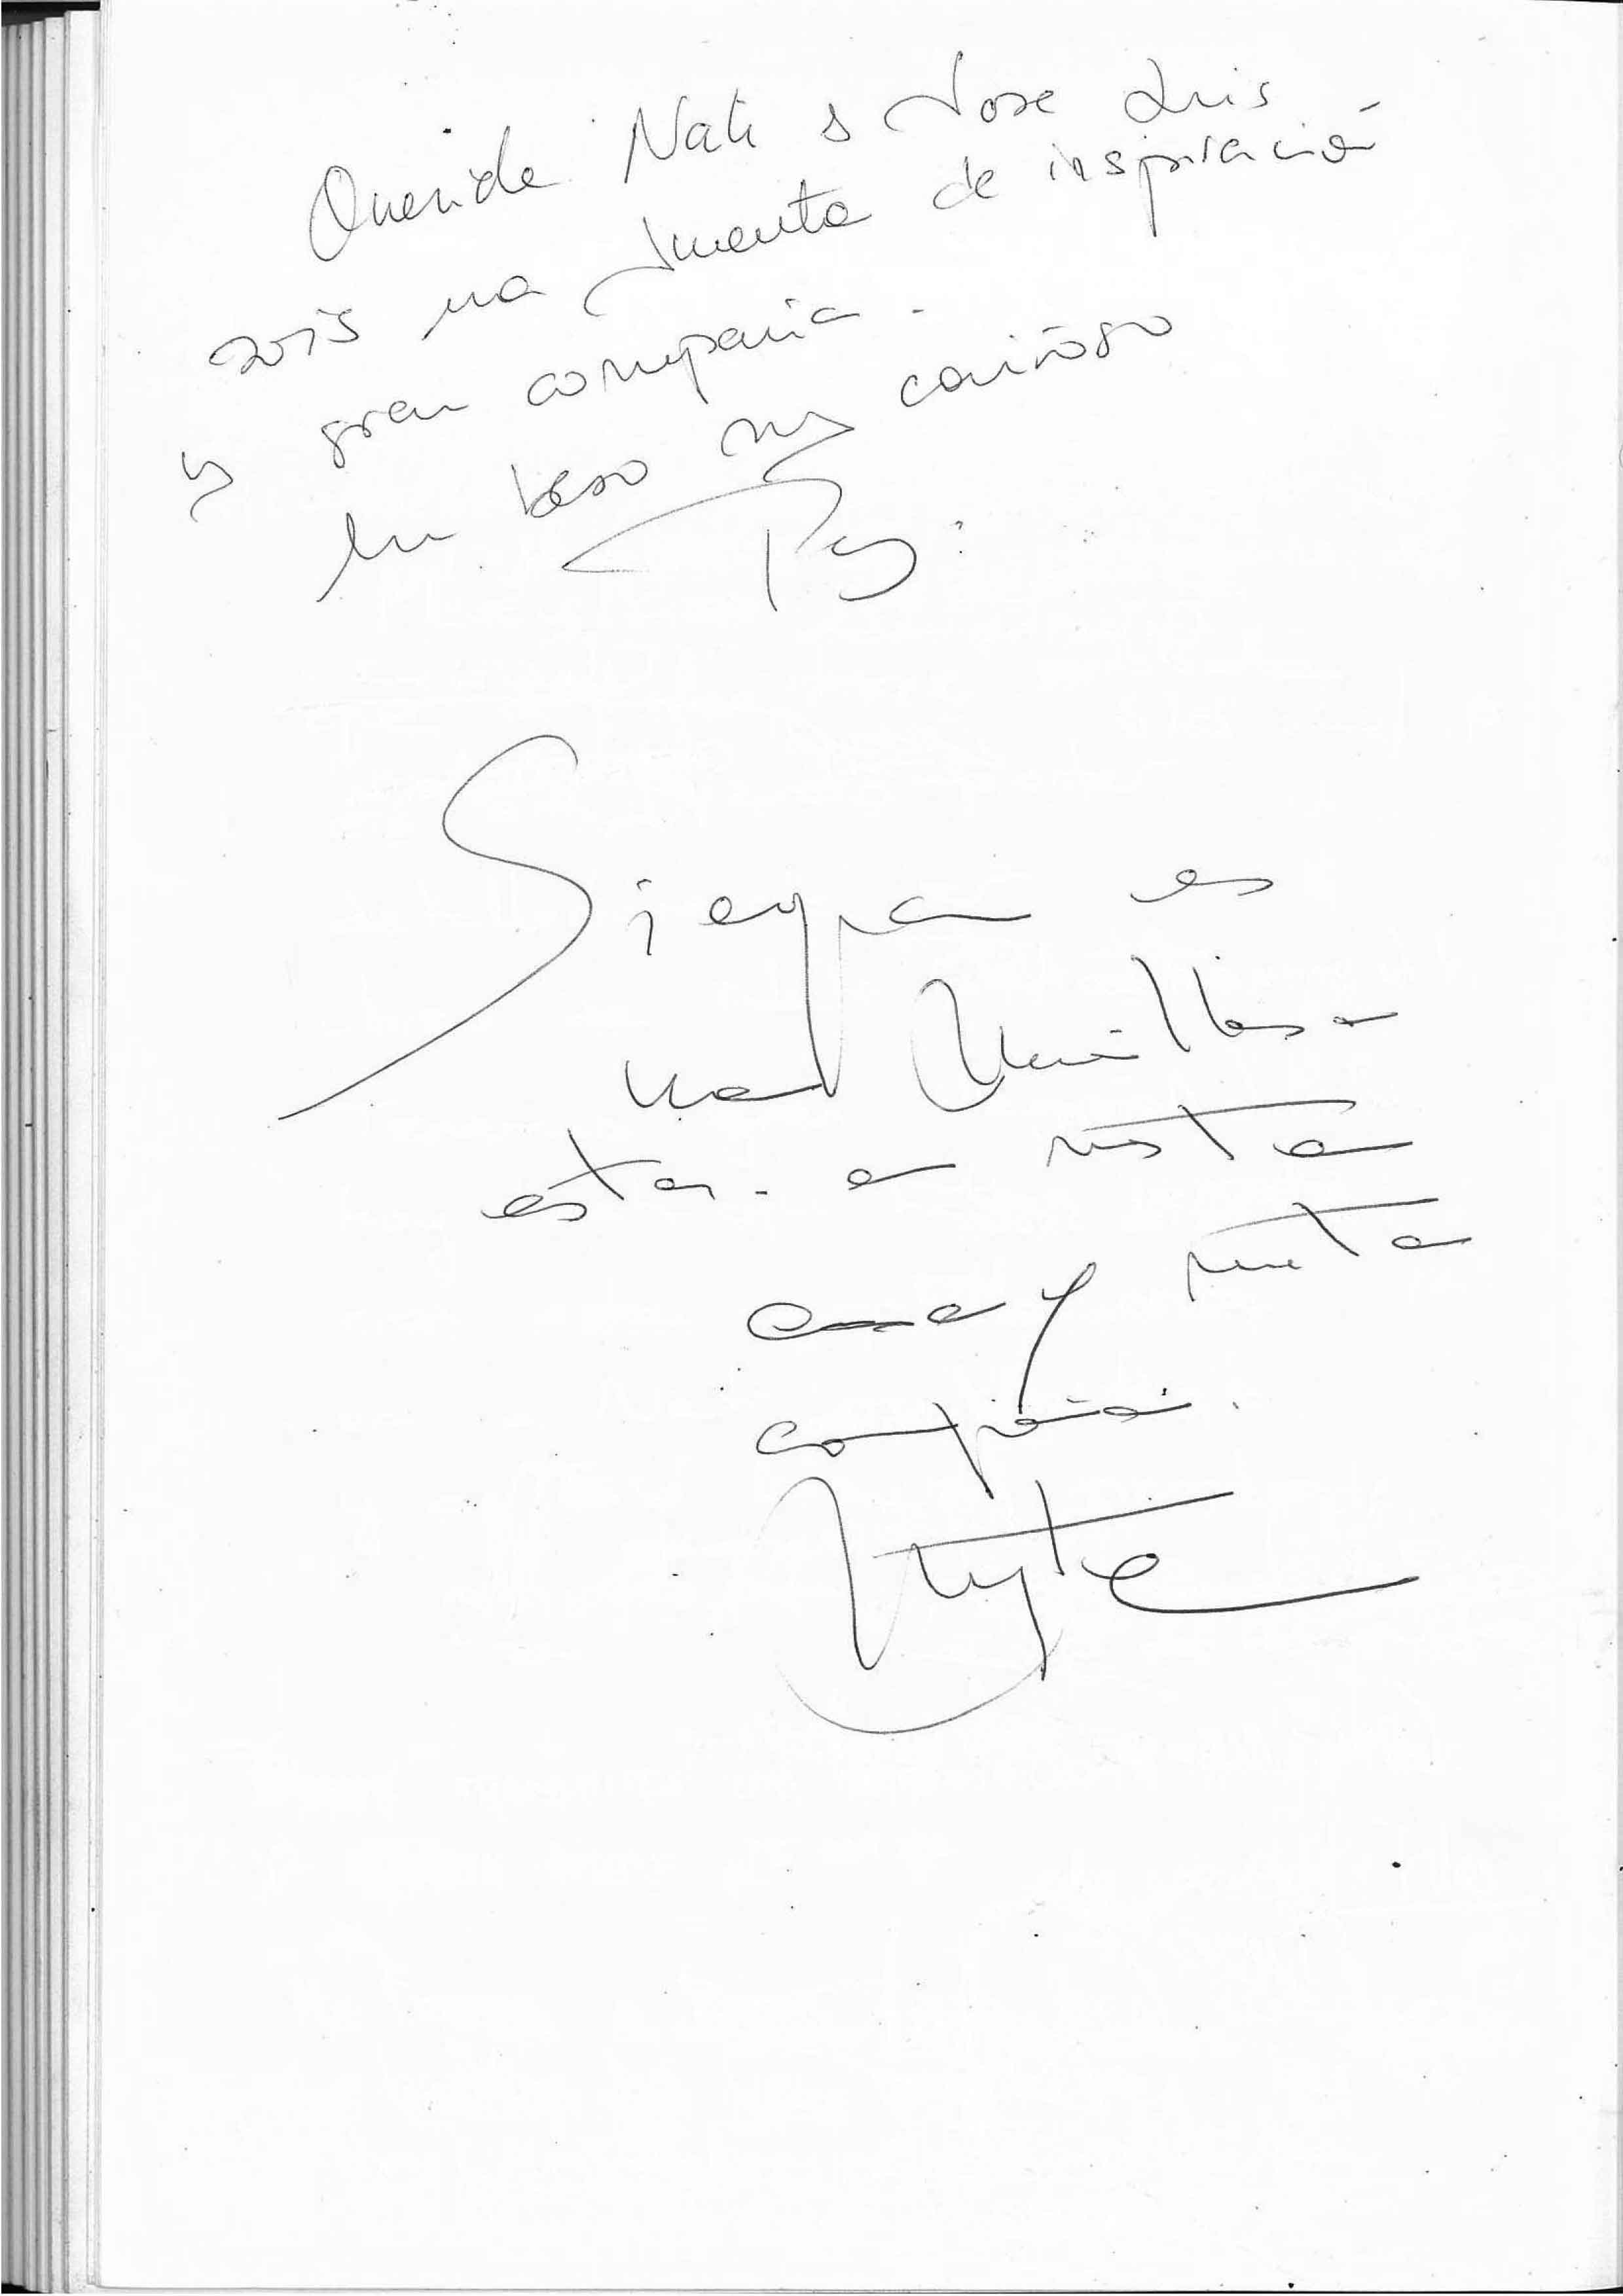 Querida Nati y Jose Luis
sois una fuente de inspiración
y gran compania.
Un beso muy cariñoso

Siempre es
una maravilla
estar en vuestra
casa y vuestra
compañía.